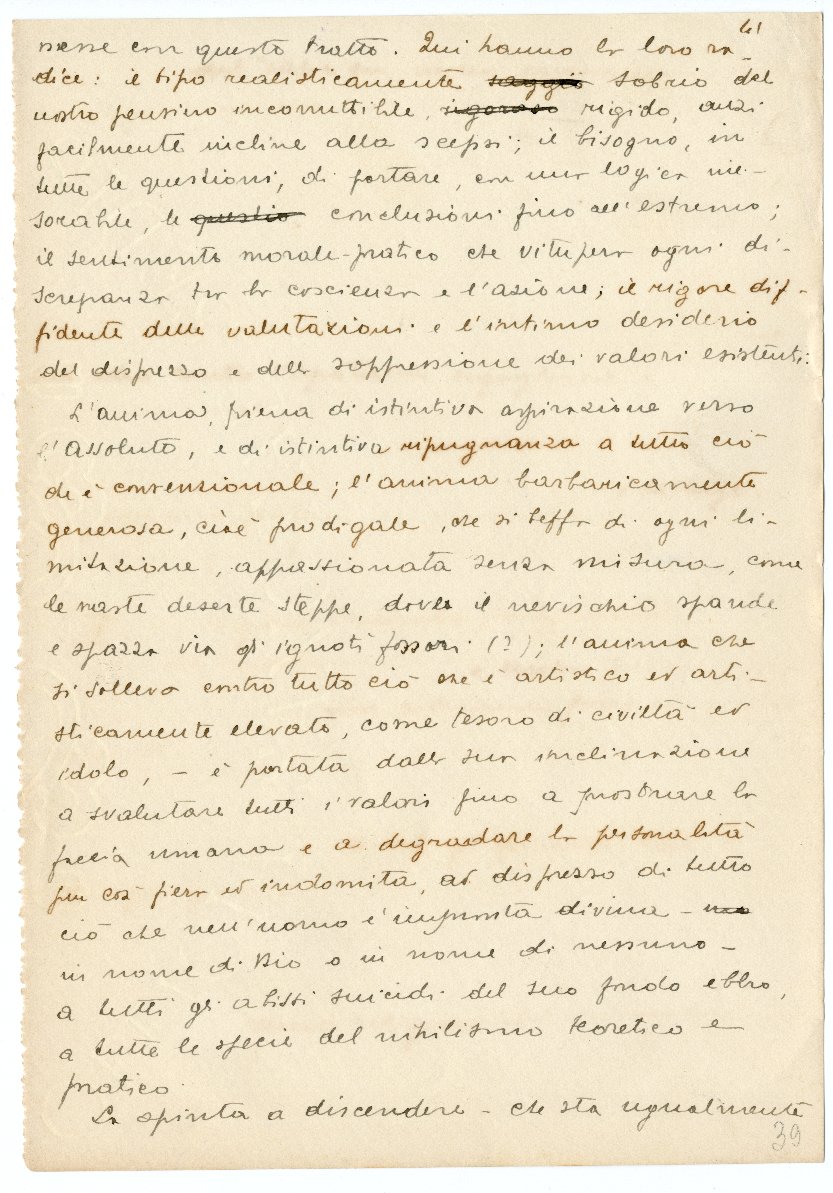 41
nesse con questo tratto. Qui hanno la loro ra-
dice: il tipo realisticamente saggio sobrio del
nostro pensiero incorruttibile, rigoroso rigido, anzi
facilmente incline alla scepsi; il bisogno, in
tutte le questioni, di portare, con una logica ine-
sorabile, le questio conclusioni fino all'estremo;
il sentimento morale-pratico che vitupera ogni di-
screpanza tra la coscienza e l'azione; il rigore dif-
fidente delle valutazioni e l'intimo desiderio
del disprezzo e della soppressione dei valori esistenti.
L'anima, piena di istintiva aspirazione verso
l'Assoluto, e di istintiva ripugnanza a tutto ciò
che è convenzionale; l'anima barbaricamente
generosa, cioè prodigale, che si beffa di ogni li-
mitazione, appassionata senza misura, come
le vaste deserte steppe, dove il nevischio spande
e spazza via gl'ignoti fossori (?); l'anima che
si solleva contro tutto ciò che è artistico ed arti-
sticamente elevato, come tesoro di civiltà ed
idolo, - è portata dalla sua inclinazione
a svalutare tutti i valori fino a prostrare la
faccia umana e a degradare la personalità
pur così fiera ed indomita, al disprezzo di tutto
ciò che nell'uomo è impronta divina -
in nome di Dio o in nome di nessuno -
a tutti gli abissi suicidi del suo fondo ebbro,
a tutte le specie del nihilismo teoretico e
pratico.
La spinta a discendere - che sta ugualmente
39